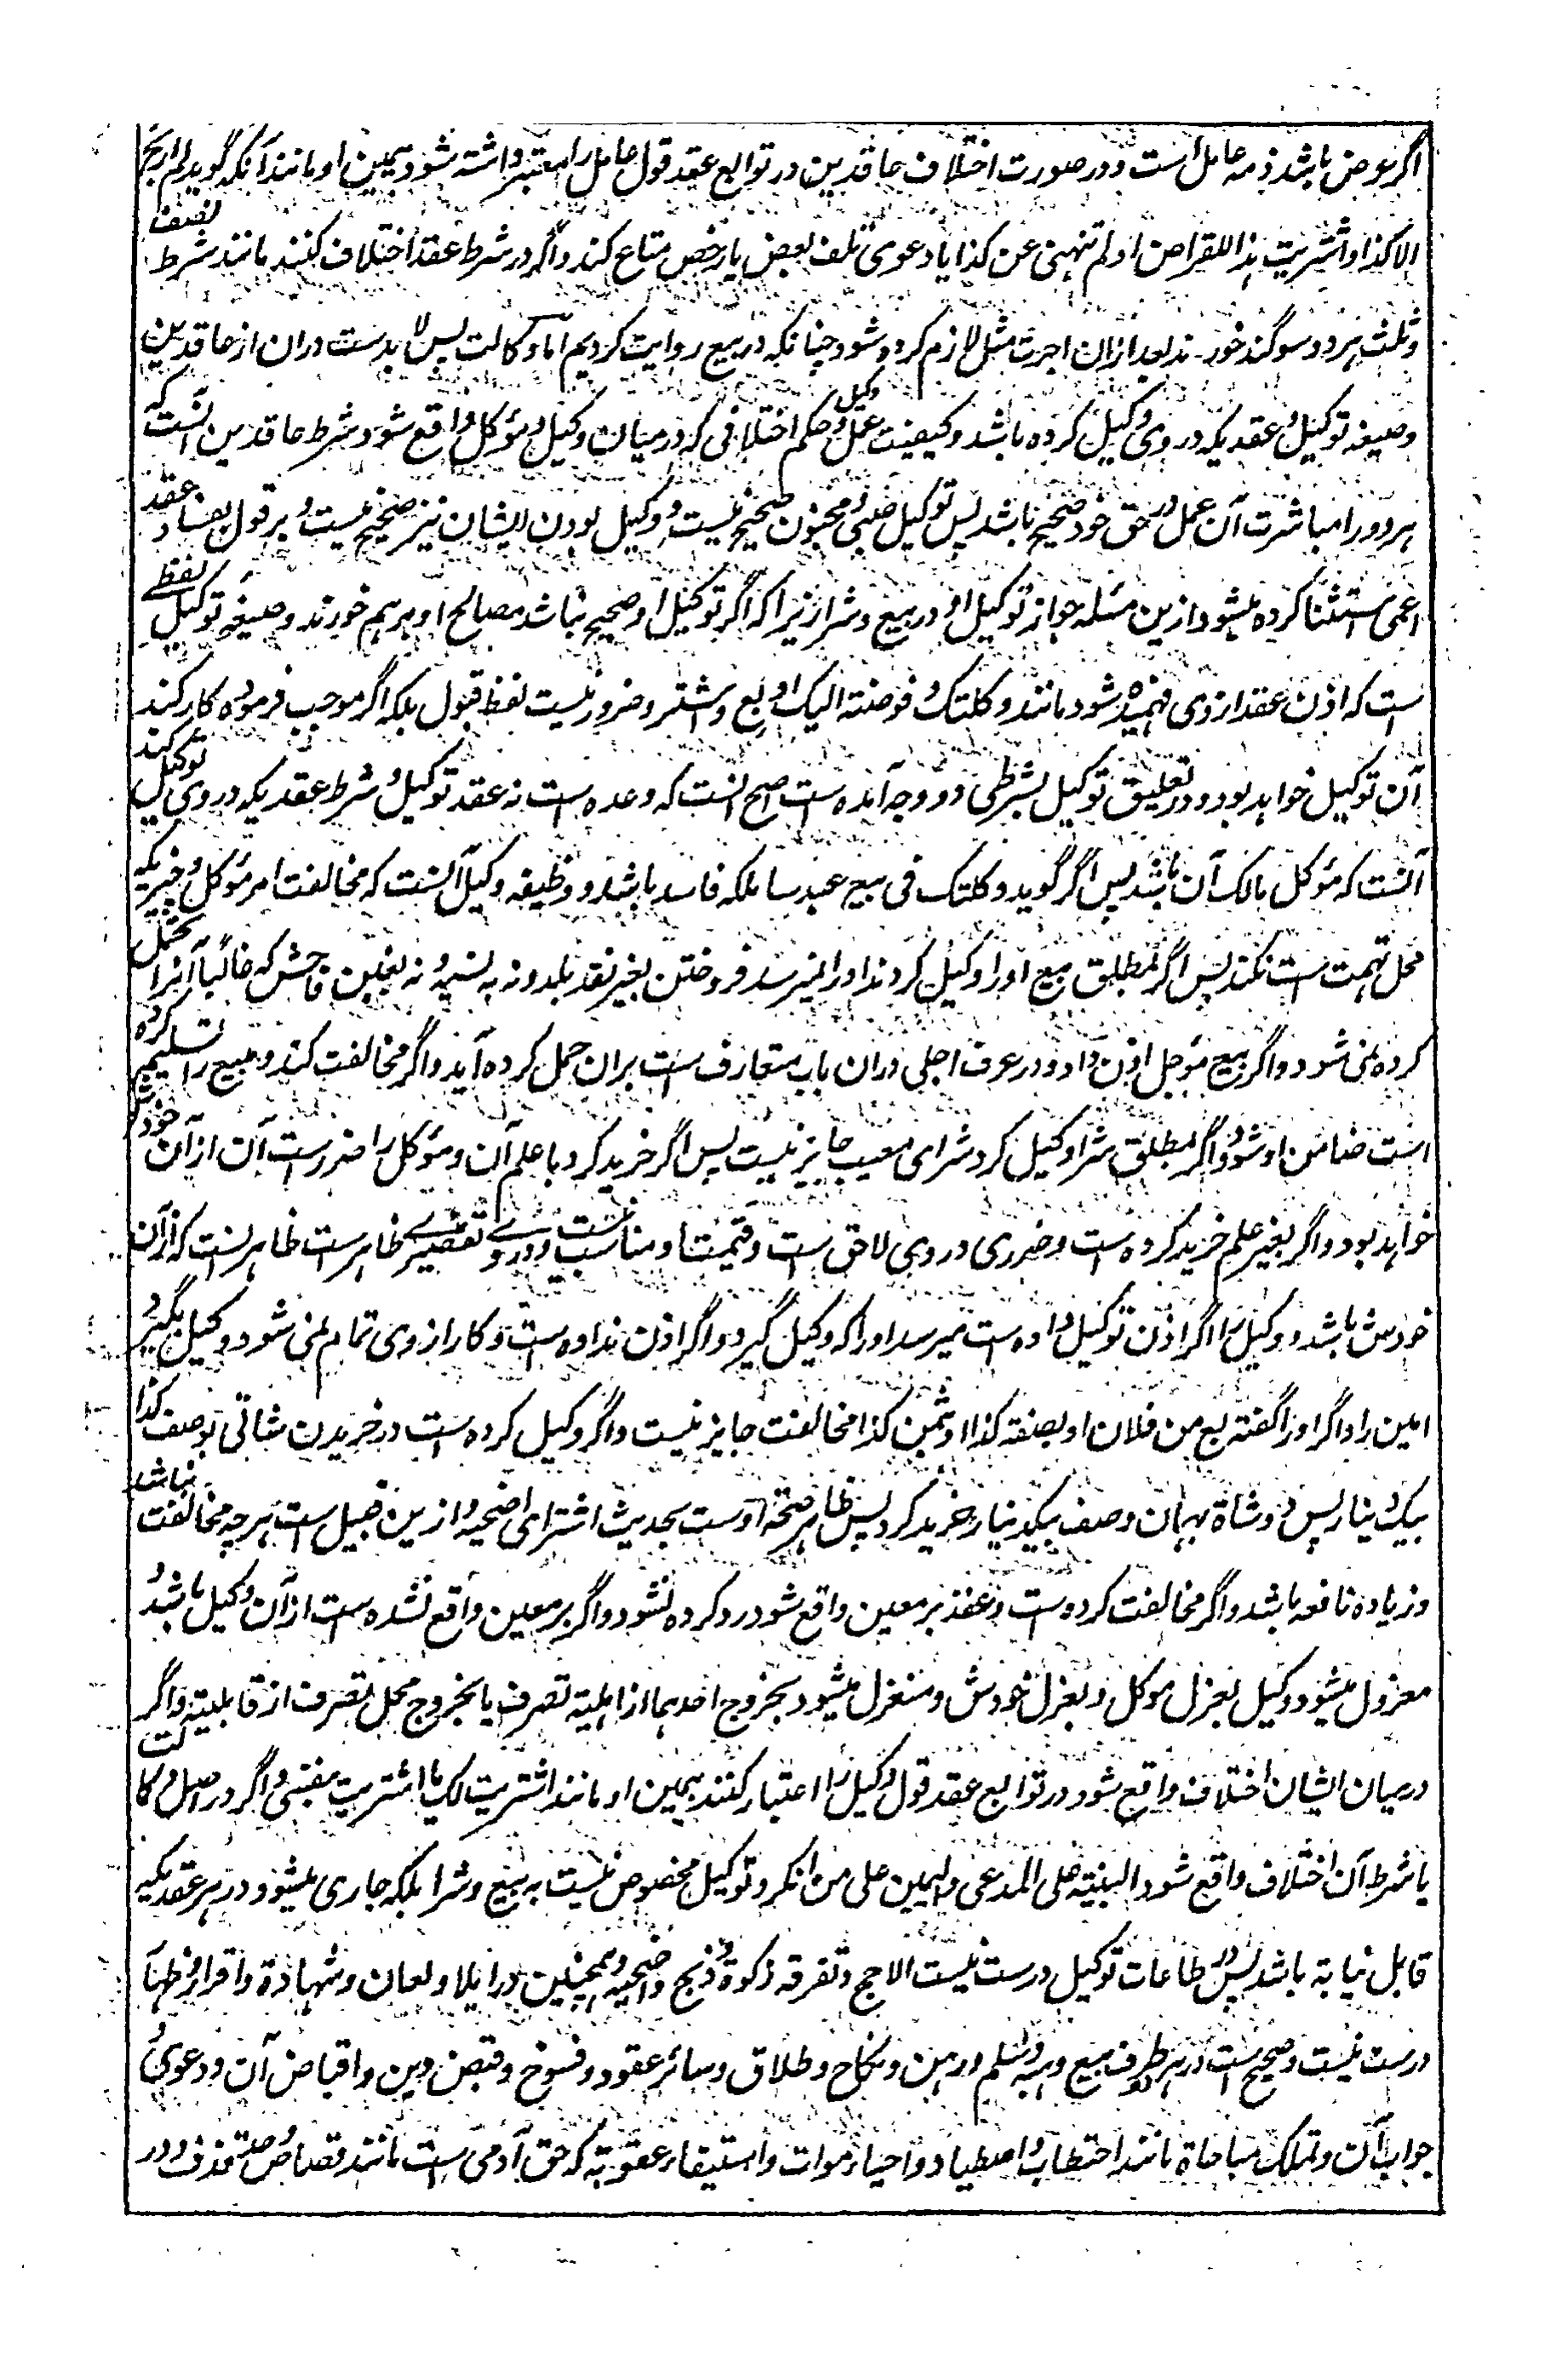 اگر بعوض باشد ذمه عامل است و در صورت اختلاف عاقدین در توابع عقد قول عامل را معتبر داشته شود بیمین او مانند آنکه گوید لم اربح
الا کذا او اشتریت هذا للقراض او لم تنهنی عن کذا یا دعوی تلف بعض یا رخص متاع کند و اگر در شرط عقد اختلاف کنند مانند شرط نصف
و ثلث هر دو سوگند خورند بعد ازان اجرت مثل لازم کرده شود چنانکه در بیع روایت کردیم اما وکالت پس لابدست دران از عاقدین
و صیغه توکیل و عقدیکه در وی وکیل کرده باشد و کیفیت عمل وکیل و حکم اختلافی که درمیان وکیل و مؤکل واقع شود و شرط عاقدین آنست که
هر دو را مباشرت آن عمل در حق خود صحیح باشد پس توکیل صبی و مجنون صحیح نیست و وکیل بودن ایشان نیز صحیح نیست و بر قول بفساد عقد
اعمی استثنا کرده میشود ازین مسئله جواز توکیل او در بیع و شرا زیرا که اگر توکیل او صحیح نباشد مصالح او برهم خورند و صیغه توکیل لفظے
ست که اذن عقد از وی فهمیده شود مانند وکلتک و فوضته الیک او بع و اشتر و ضرور نیست لفظ قبول بلکه اگر موجب فرموده کار کند
آن توکیل خواهد بود و در تعلیق توکیل بشرطی دو وجه آمده است اصح آنست که وعده است نه عقد توکیل و شرط عقدیکه در وی توکیل کند
آنست که مؤکل مالک آن باشد پس اگر گوید وکلتک فی بیع عبد ساملکه فاسد باشد و وظیفه وکیل آنست که مخالفت امر مؤکل و چیزیکه
محل تهمت ست نکند پس اگر بمطلق بیع او را وکیل کردند او را نمیرسد فروختن بغیر نقد بلد و نه به نسیه و نه بغبن فاحش که غالباً آنرا تحمل
کرده نمی شود و اگر ببیع مؤجل اذن داد و در عرف اجلی دران باب متعارف ست بران حمل کرده آید و اگر مخالفت کند و مبیع را تسلیم کرده
است ضامن او شود و اگر بمطلق شرا وکیل کرد شرای معیب جایز نیست پس اگر خرید کرد با علم آن و مؤکل را ضررست آن از آن خودش
خواهد بود و اگر بغیر علم خرید کرده است و ضرری در وی لاحق است و قیمتا و مناسب نیست و در وے تقصیرے ظاهرست ظاهر نست که از آن
خودش باشد و وکیل را اگر اذن توکیل داده ست میرسد او را که وکیل گیرد و اگر اذن نداده است و کار از وی تمام نمی شود وکیل بگیرد
امین را و اگر او را گفته بع من فلان او بصفته کذا او ثمن کذا مخالفت جایز نیست و اگر وکیل کرده ست در خریدن شاتی بوصف کذا
بیک دینار پس دو شاة بهمان وصف بیکدینار خرید کرد پس ظاهر صحته اوست بحدیث اشترای اضحیه و ازین قبیل ست هر چه مخالفت نباشد
و زیاده نافعه باشد و اگر مخالفت کرده ست و عقد بر معین واقع شود رد کرده نشود و اگر بر معین واقع نشده ست از آن وکیل باشد و
معزول میشود وکیل بعزل موکل و بعزل خودش و منعزل میشود بخروج احدهما از اهلیة تصرف یا بخروج محل تصرف از قابلیته و اگر
درمیان ایشان اختلاف واقع شود در توابع عقد قول وکیل را اعتبار کنند بیمین او مانند اشتریت لک یا اشتریت بفنی و اگر در اصل وکالت
یا شرط آن اختلاف واقع شود البینة علی المدعی و الیمین علی من انکر و توکیل مخصوص نیست به بیع و شرا بلکه جاری میشود در هر عقدیکه
قابل نیابة باشد پس در طاعات توکیل درست نیست الا حج و تفرقه زکوة و ذبح اضحیه و همچنین در ایلا و لعان و شهادة و اقرار و ظهار
درست نیست و صحیح ست در هر طرف بیع و هبه و سلم و رهن و نکاح و طلاق و سائر عقود و فسوخ و قبض دین و اقباض آن و دعوی و
جواب آن و تملک مباحاة مانند احتطاب و اصطیاد و احیاء موات و استیفاء عقوبة که حق آدمی ست مانند قصاص و حد قذف و در